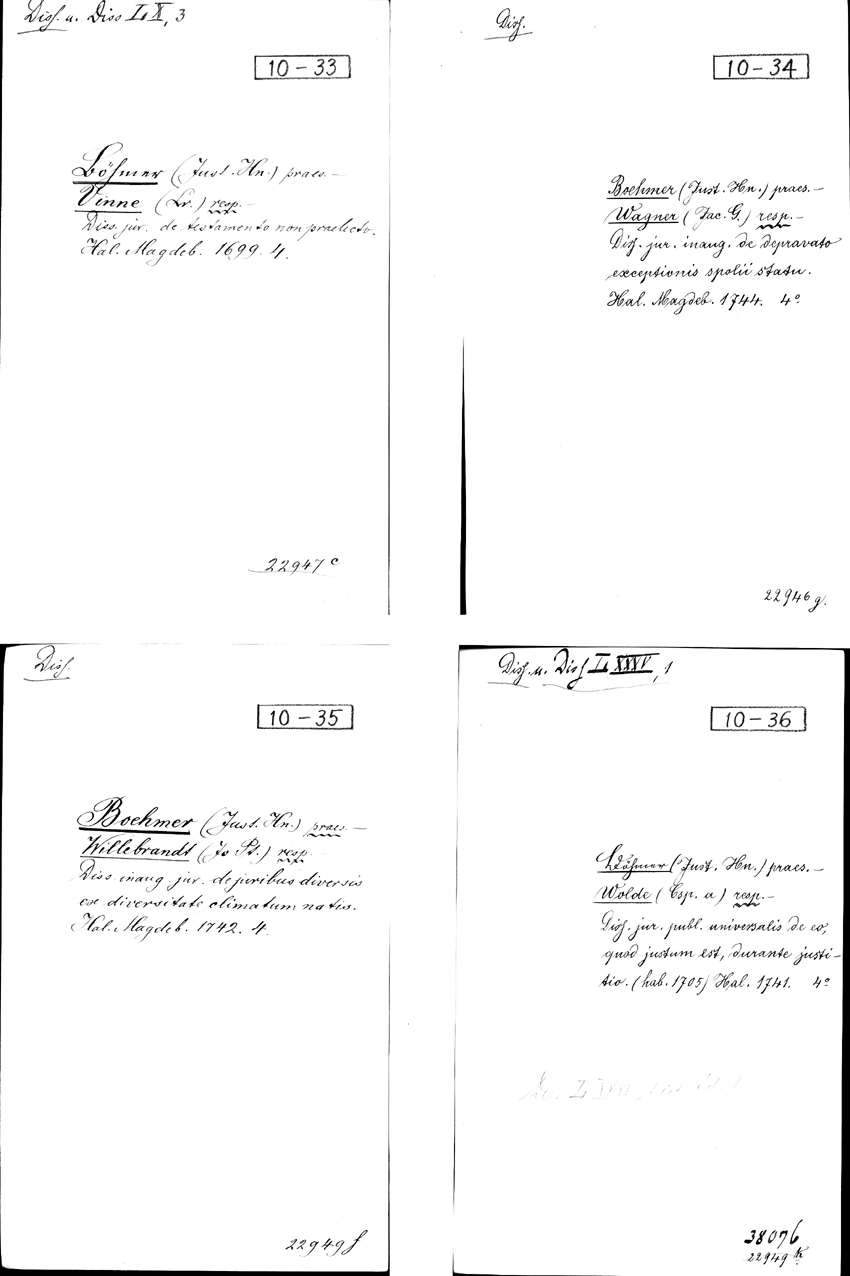 Diss. u. Diss I. X, 3
10-33
Böhmer (Just. Hn.) praes.—
Vinne (Lr.) resp.—
Diss. jur. de testamento non praelecto.
Hal. Magdeb. 1699. 4.
22947 c
Diss.
10-34
Boehmer (Just. Hn.) praes.—
Wagner (Jac. G.) resp.—
Diss. jur. inaug. de depravato
exceptionis spolii statu.
Hal. Magdeb. 1744. 4°
22946 g.
Diss.
10-35
Boehmer (Just. Hn.) praes.—
Willebrandt (Jo Pt.) resp.
Diss inaug. jur. de juribus diversis
ex diversitate climatum natis.
Hal. Magdeb. 1742. 4.
22949 f
Diss. u. Diss I. XXXV, 1
10-36
Böhmer (Just. Hn.) praes.—
Wolde (Csp. a) resp.—
Diss. jur. publ. universalis de eo,
quod justum est, durante justi-
tio. (hab. 1705) Hal. 1741. 4°
38076
22949 k